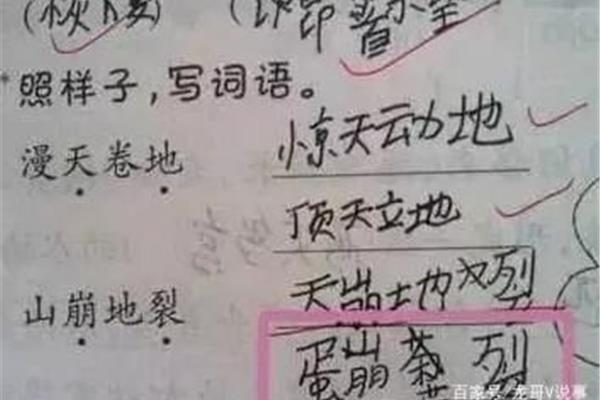 照样子，写词语。
漫天卷地 惊天动地
顶天立地
山崩地裂 天崩地裂
蛋崩茶裂
百家号/龙哥V说事